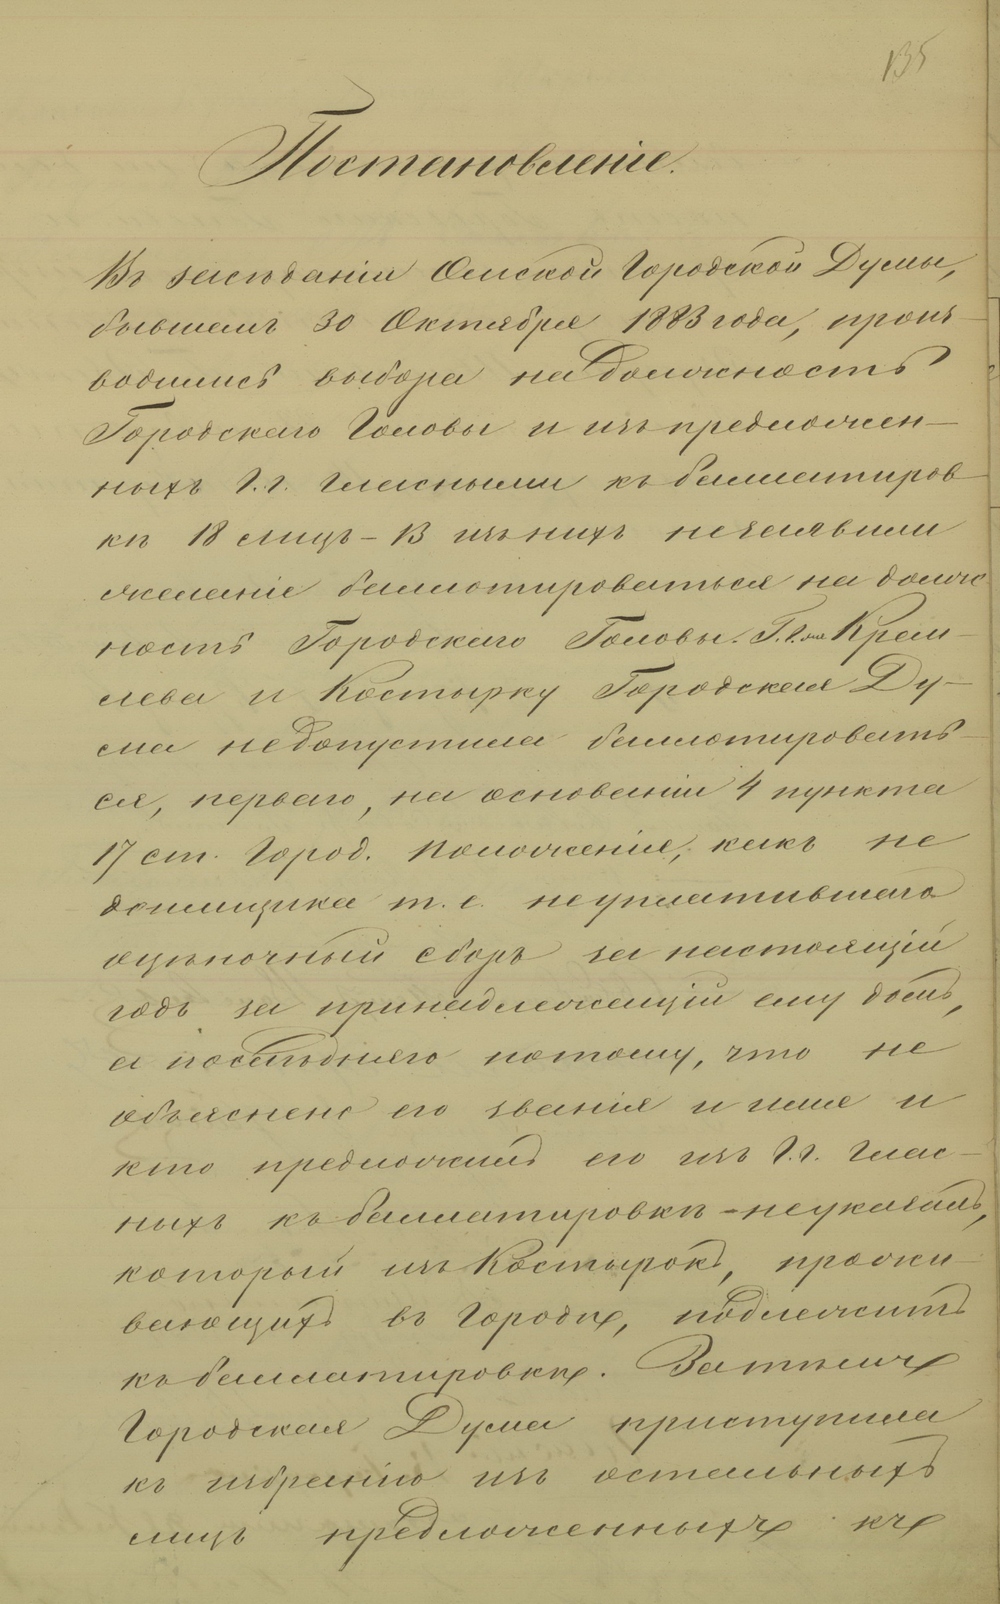 135
Постановленіе.
Въ засѣданіи Омской Городской Думы,
бывшемъ 30 Октября 1883 года, произ-
водились выбора на должность
Городскаго Головы и изъ предложен-
ныхъ Г.г. Гласными къ баллатиров-
кѣ 18 лицъ - 13 изъ нихъ незаявили
желаніе баллотироваться на долж-
ность Городскаго Головы. Г.г. Крем-
лева и Костырку Городская Ду-
ма недопустила баллотировать-
ся, перваго, на основаніи 4 пункта
17 ст. Город. Положенія, какъ не
доимщика т.е. неуплатившаго
оцѣночный сборъ за настоящій
годъ за принадлежащій ему домъ,
а послѣдняго потому, что не
объяснено его званія и имя и
кто предложилъ его изъ Г.г. Глас-
ныхъ къ баллатировкѣ - неуказалъ,
который изъ Костырокъ, прожи-
вающихъ въ Городѣ, подлежитъ
къ баллатировкѣ. Затѣмъ
Городская Дума приступила
къ избранію изъ остальныхъ
лицъ предложенныхъ къ